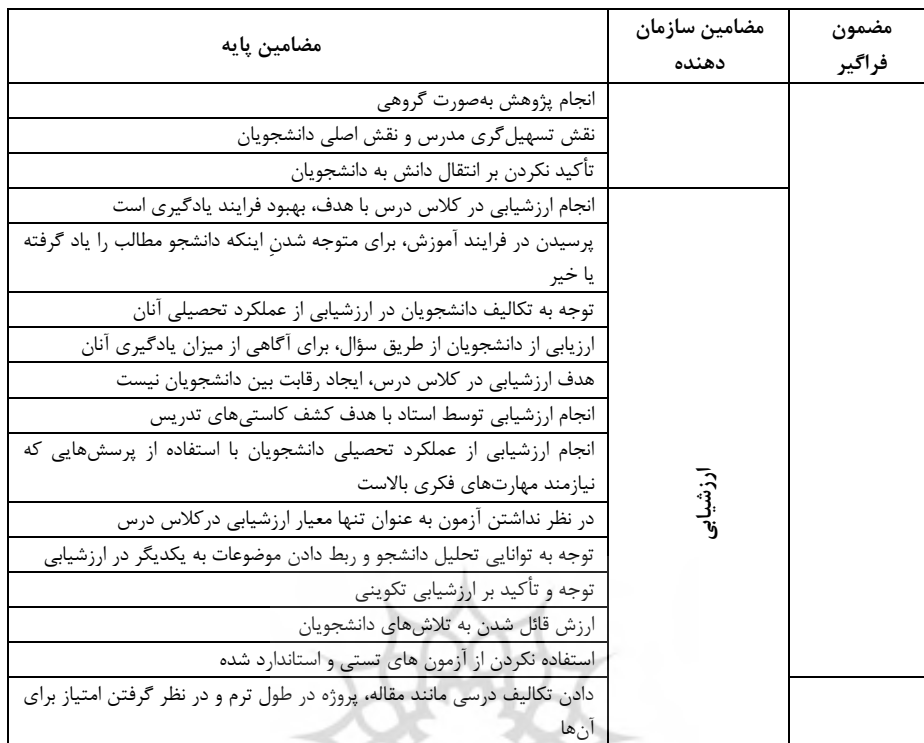 مضمون
فراگیر
مضامین سازمان
دهنده
مضامین پایه
انجام پژوهش به‌صورت گروهی
نقش تسهیل‌گری مدرس و نقش اصلی دانشجویان
تأکید نکردن بر انتقال دانش به دانشجویان
ارزشیابی
انجام ارزشیابی در کلاس درس با هدف، بهبود فرایند یادگیری است
پرسیدن در فرایند آموزش، برای متوجه شدنِ اینکه دانشجو مطالب را یاد گرفته
یا خیر
توجه به تکالیف دانشجویان در ارزشیابی از عملکرد تحصیلی آنان
ارزیابی از دانشجویان از طریق سؤال، برای آگاهی از میزان یادگیری آنان
هدف ارزشیابی در کلاس درس، ایجاد رقابت بین دانشجویان نیست
انجام ارزشیابی توسط استاد با هدف کشف کاستی‌های تدریس
انجام ارزشیابی از عملکرد تحصیلی دانشجویان با استفاده از پرسش‌هایی که
نیازمند مهارت‌های فکری بالاست
در نظر نداشتن آزمون به عنوان تنها معیار ارزشیابی درکلاس درس
توجه به توانایی تحلیل دانشجو و ربط دادن موضوعات به یکدیگر در ارزشیابی
توجه و تأکید بر ارزشیابی تکوینی
ارزش قائل شدن به تلاش‌های دانشجویان
استفاده نکردن از آزمون های تستی و استاندارد شده
دادن تکالیف درسی مانند مقاله، پروژه در طول ترم و در نظر گرفتن امتیاز برای
آن‌ها